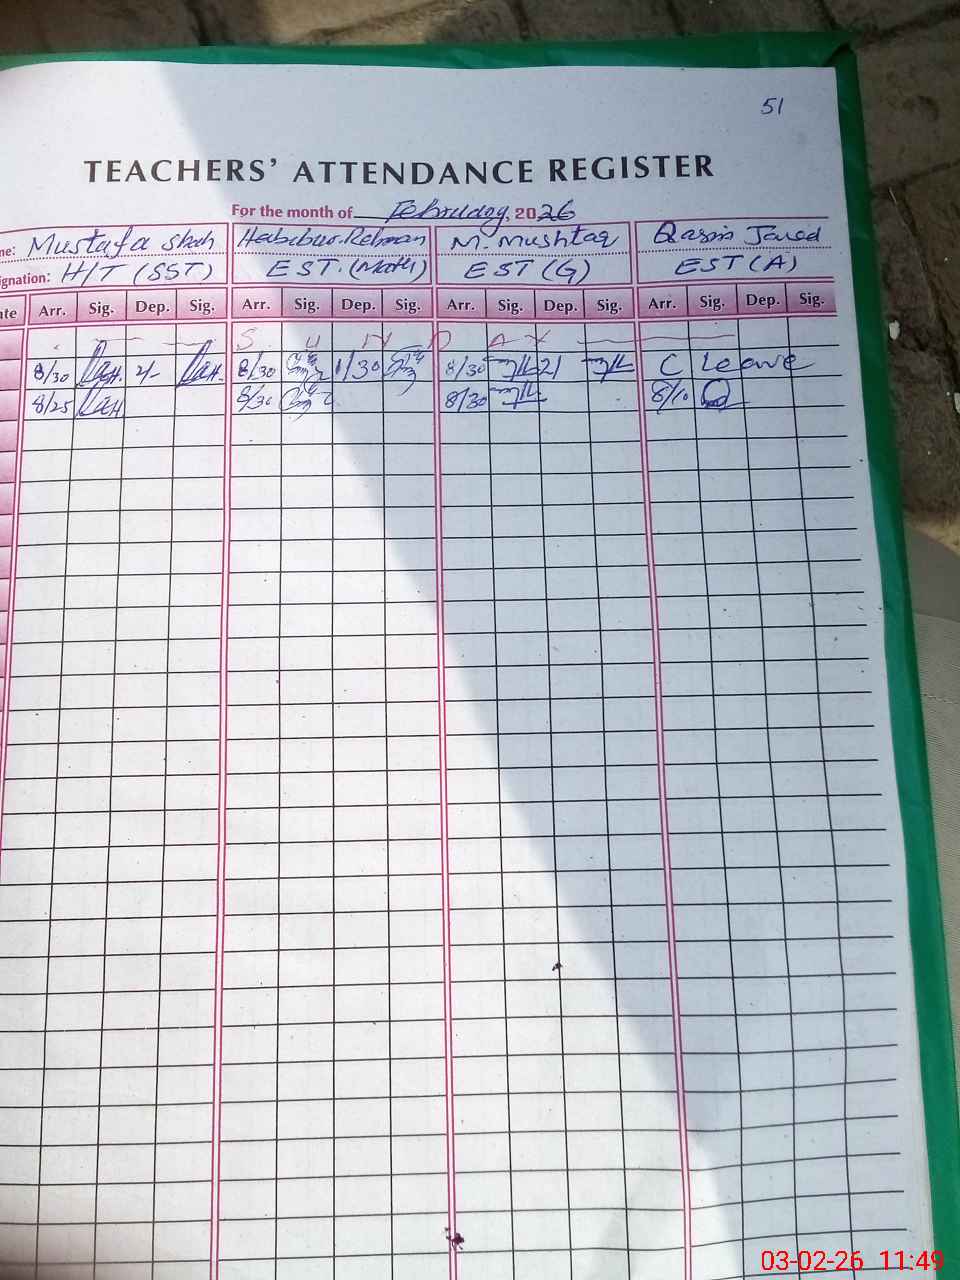 51
TEACHERS' ATTENDANCE REGISTER
For the month of February, 2026
me: Mustafa Shah Habibur.Rehman M. Mushtaq Qasim Javed
signation: H/T (SST) EST.(Math) EST (G) EST (A)
ate Arr. Sig. Dep. Sig. Arr. Sig. Dep. Sig. Arr. Sig. Dep. Sig. Arr. Sig. Dep. Sig.
S U N D A Y
8/30 2/- 8/30 1/30 8/30 2/ C Leave
8/25 8/30 8/30 8/10
03-02-26 11:49